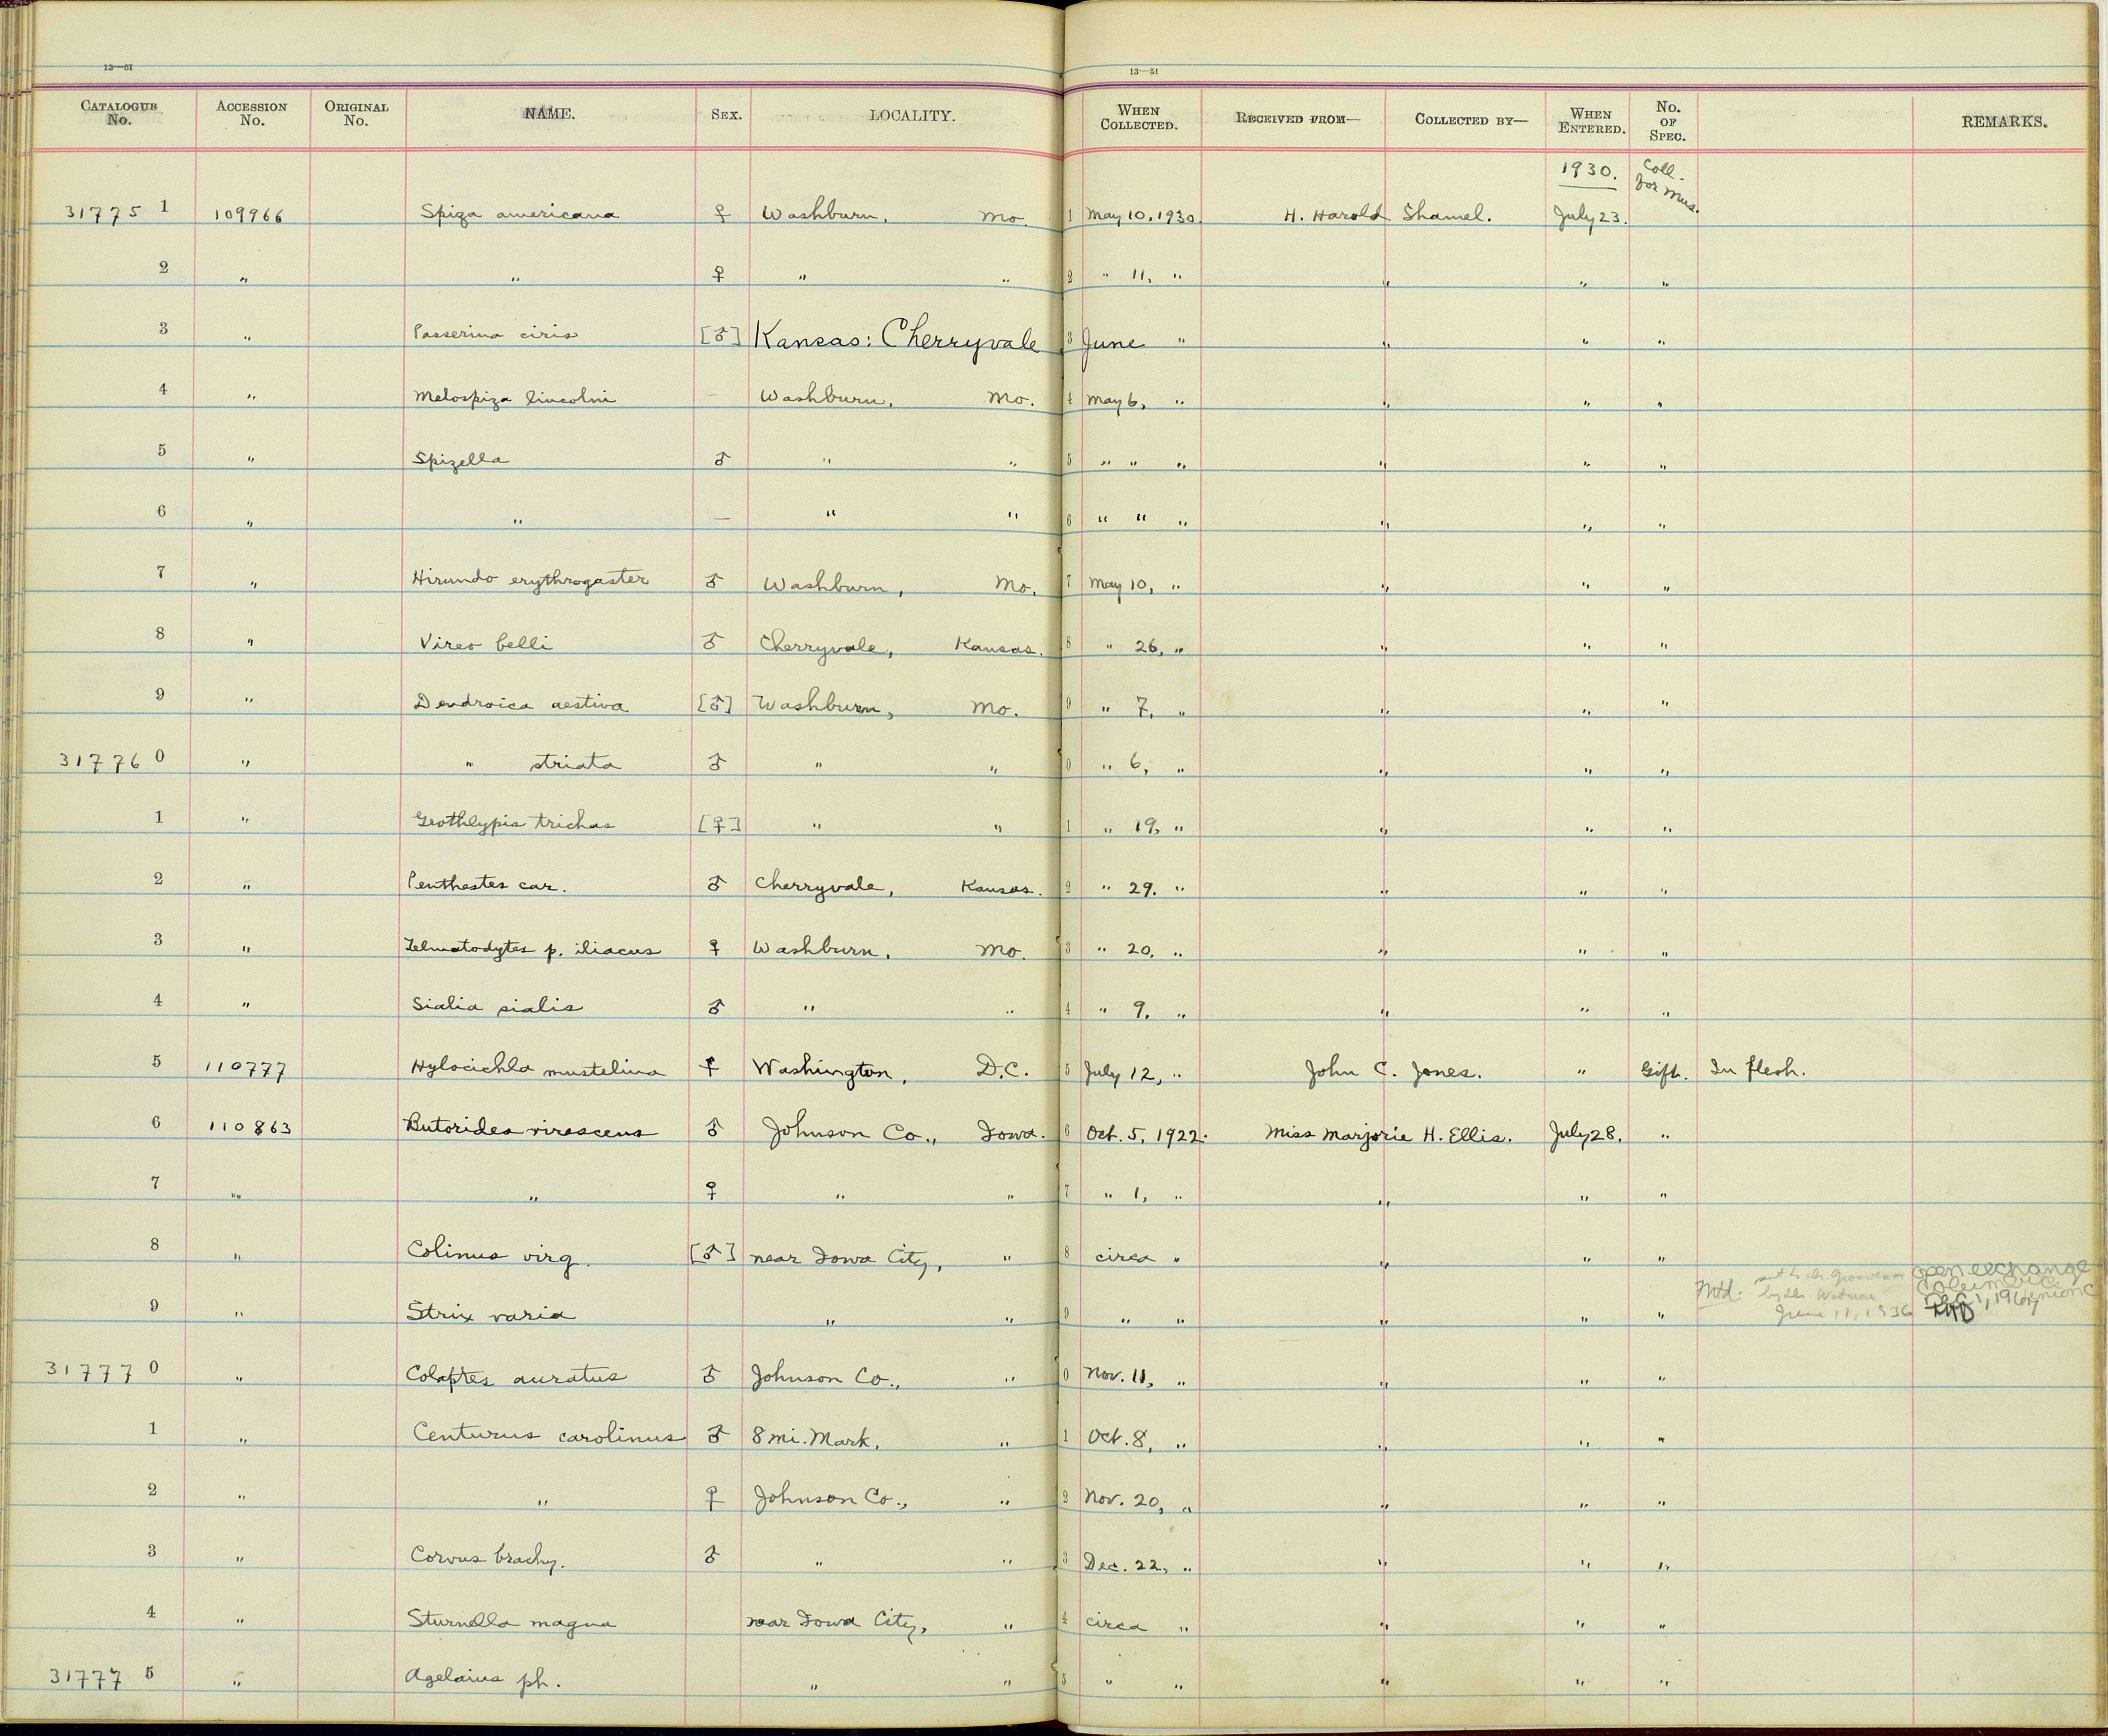 13—51 13—51
CATALOGUE No. ACCESSION No. ORIGINAL No. NAME. SEX. LOCALITY. WHEN COLLECTED. RECEIVED FROM— COLLECTED BY— WHEN ENTERED. No. OF SPEC. REMARKS.
1930. Coll. for Mus.
31775 1 109966 Spiza americana ♀ Washburn, Mo 1 May 10, 1930. H. Harold Shamel. July 23.
2 " " ♀ " " 2 " 11, " " " "
3 " Passerina ciris [♂] Kansas: Cherryvale 3 June " " " "
4 " Melospiza lincolni — Washburn, Mo. 4 May 6, " " " "
5 " Spizella ♂ " " 5 " " " " " "
6 " " — " " 6 " " " " " "
7 " Hirundo erythrogaster ♂ Washburn, Mo. 7 May 10, " " " "
8 " Vireo belli ♂ Cherryvale, Kansas. 8 " 26, " " " "
9 " Dendroica aestiva [♂] Washburn, Mo. 9 " 7, " " " "
31776 0 " " striata ♂ " " 0 " 6, " " " "
1 " Geothlypis trichas [♀] " " 1 " 19, " " " "
2 " Penthestes car. ♂ Cherryvale, Kansas. 2 " 29. " " " "
3 " Telmatodytes p. iliacus ♀ Washburn, Mo. 3 " 20, " " " "
4 " Sialia sialis ♂ " " 4 " 9, " " " "
5 110777 Hylocichla mustelina ♀ Washington, D.C. 5 July 12, " John C. Jones. " Gift. In flesh.
6 110863 Butorides virescens ♂ Johnson Co., Iowa. 6 Oct. 5, 1922. Miss Marjorie H. Ellis. July 28. "
7 " " ♀ " " 7 " 1, " " " "
8 " Colinus virg. [♂] near Iowa City, " 8 circa " " " "
9 " Strix varia " " 9 " " " " " Mtd. June 11, 1936 open exchange Dec 1, 1964
31777 0 " Colaptes auratus ♂ Johnson Co., " 0 Nov. 11, " " " "
1 " Centurus carolinus ♂ 8 mi. Mark, " 1 Oct. 8, " " " "
2 " " ♀ Johnson Co., " 2 Nov. 20, " " " "
3 " Corvus brachy. ♂ " " 3 Dec. 22, " " " "
4 " Sturnella magna near Iowa City, " 4 circa " " " "
31777 5 " Agelaius ph. " " 5 " " " " "